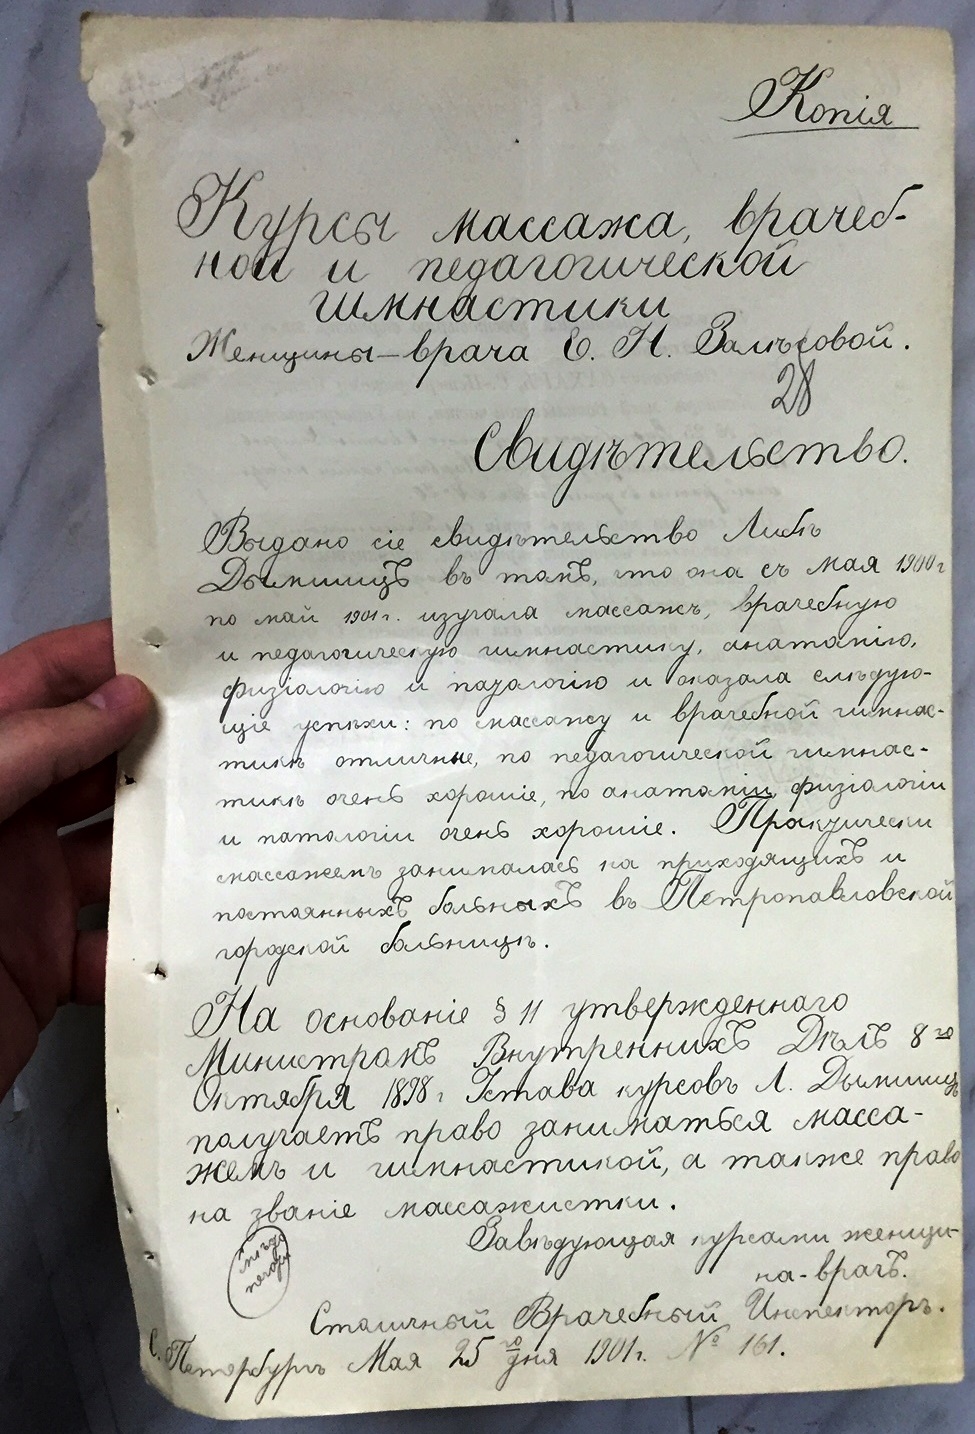 Копія
Курсы массажа, врачеб-
ной и педагогической
гимнастики
Женщины-врача Е. Н. Залѣсовой.
28
Свидѣтельство.
Выдано сіе свидѣтельство Либѣ
Дымшицъ въ томъ, что она съ мая 1900 г
по май 1901 г. изучала массажъ, врачебную
и педагогическую гимнастику, анатомію,
физіологію и патологію и оказала слѣдую-
щіе успѣхи: по массажу и врачебной гимнас-
тикѣ отличные, по педагогической гимнас-
тикѣ очень хорошіе, по анатоміи, физіологіи
и патологіи очень хорошіе. Практически
массажемъ занималась на приходящихъ и
постоянныхъ больныхъ въ Петропавловской
городской больницѣ.
На основаніе § 11 утвержденнаго
Министромъ Внутреннихъ Дѣлъ 8го
Октября 1898 г Устава курсовъ Л. Дымшицъ
получаетъ право заниматься масса-
жемъ и гимнастикой, а также право
на званіе массажистки.
Завѣдующая курсами женщи-
на-врачъ.
мѣсто
печати
Столичный Врачебный Инспекторъ.
С. Петербургъ Мая 25го дня 1901 г. № 161.